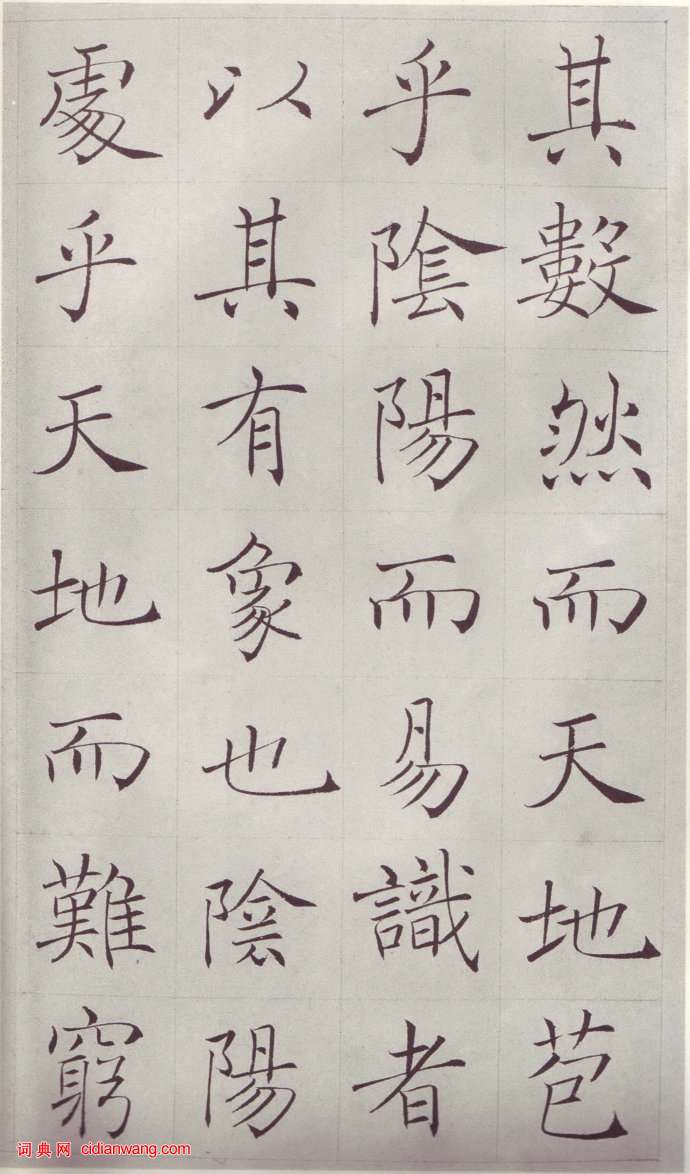 其數然而天地苞
乎陰陽而易識者
以其有象也陰陽
處乎天地而難窮
词典网 cidianwang.com